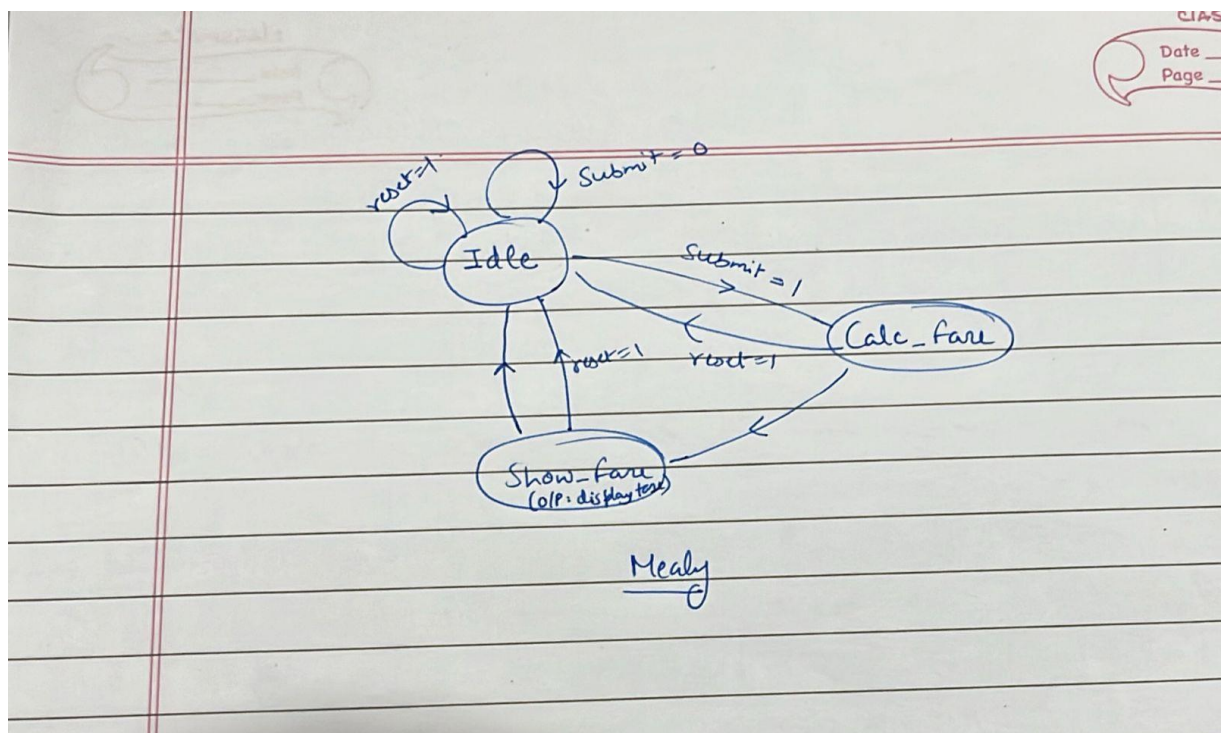 CLAS
Date
Page
reset=1
Submit = 0
Idle
Submit = 1
Calc_fare
reset=1
reset=1
Show_fare
(O/P: display fare)
Mealy